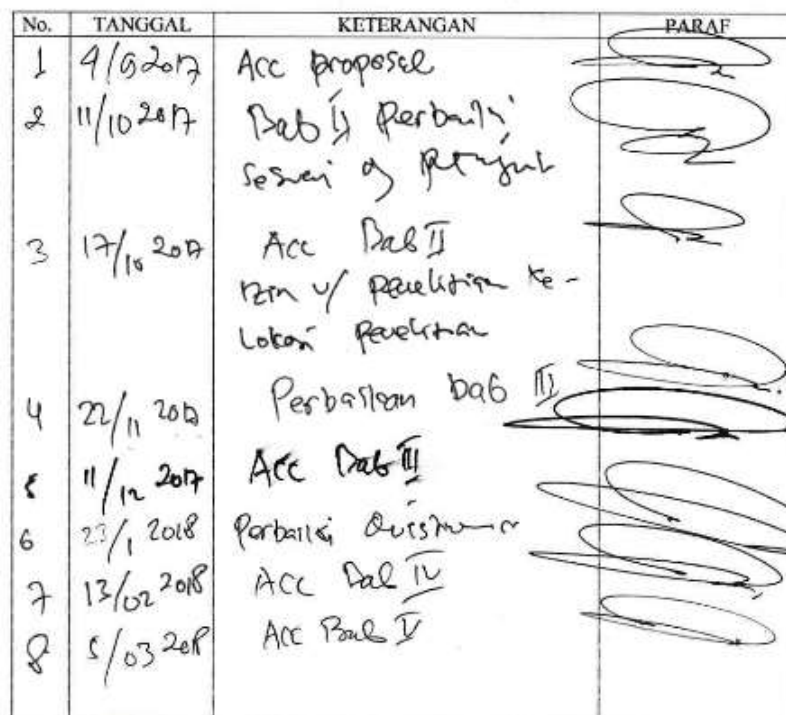 No. TANGGAL KETERANGAN PARAF
1 4/9 2017 Acc proposal
2 11/10 2017 Bab II Perbaiki
sesuai dg petunjuk
3 17/10 2017 Acc Bab II
Izin u/ penelitian ke-
Lokasi penelitian
4 22/11 2017 Perbaikan bab III
5 11/12 2017 Acc Bab III
6 23/1 2018 Perbaiki Quisioner
7 13/02 2018 Acc Bab IV
8 5/03 2018 Acc Bab V